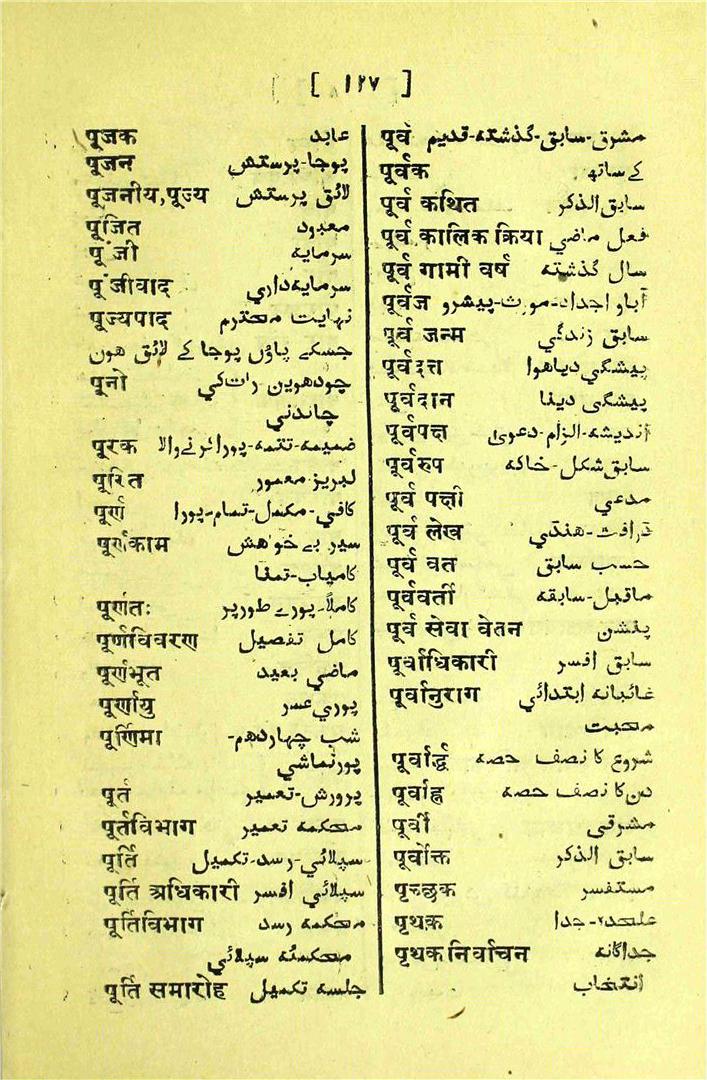 [ ۱۲۷ ]
पूजक عابد
पूजन پوجا-پرستش
पूजनीय,पूज्य لائق پرستش
पूजित معبود
पूंजी سرمایہ
पूंजीवाद سرمایہ داري
पूज्यपाद نہایت محترم
جسکے پاؤں پوجا کے لائق ھوں
पूनो چودھویں رات کي
چاندني
पूरक ضمیمہ-تتمہ-پورا کرنے والا
पूरित لبریز-معمور
पूर्ण کافي-مکمل-تمام-پورا
पूर्णकाम سیر بے خواھش
کامیاب-تمنا
पूर्णतः کاملاً-پورے طور پر
पूर्णविवरण کامل تفصیل
पूर्णभूत ماضي بعید
पूर्णायु پوري عمر
पूर्णिमा شب چہاردھم-
پورنماشي
पूर्त پرورش-تعمیر
पूर्तविभाग محکمہ تعمیر
पूर्ति سپلائي-رسد-تکمیل
पूर्ति अधिकारी سپلائي افسر
पूर्तिविभाग محکمہ رسد
محکمئہ سپلائي
पूर्ति समारोह جلسہ تکمیل
पूर्व مشرق-سابق-گذشتہ-قدیم
पूर्वक کے ساتھ
पूर्व कथित سابق الذکر
पूर्व कालिक क्रिया فعل ماضي
पूर्व गामी वर्ष سال گذشتہ
पूर्वज آباو اجداد-مورث-پیشرو
पूर्व जन्म سابق زندگي
पूर्वदत्त پیشگي دیا ھوا
पूर्वदान پیشگی دینا
पूर्वपक्ष اندیشہ-الزام-دعویٰ
पूर्वरुप سابق شکل-خاکہ
पूर्व पक्षी مدعي
पूर्व लेख ڈرافٹ-ھنڈي
पूर्व वत حسب سابق
पूर्ववर्ती ماقبل-سابقہ
पूर्व सेवा वेतन پنشن
पूर्वाधिकारी سابق افسر
पूर्वानुराग غائبانہ ابتدائي
محبت
पूर्वार्द्ध شروع کا نصف حصہ
पूर्वाह्न دن کا نصف حصہ
पूर्वी مشرقي
पूर्वोक्त سابق الذکر
पृच्छक مستفسر
पृथक علحدہ-جدا
पृथक निर्वाचन جداگانہ
انتخاب